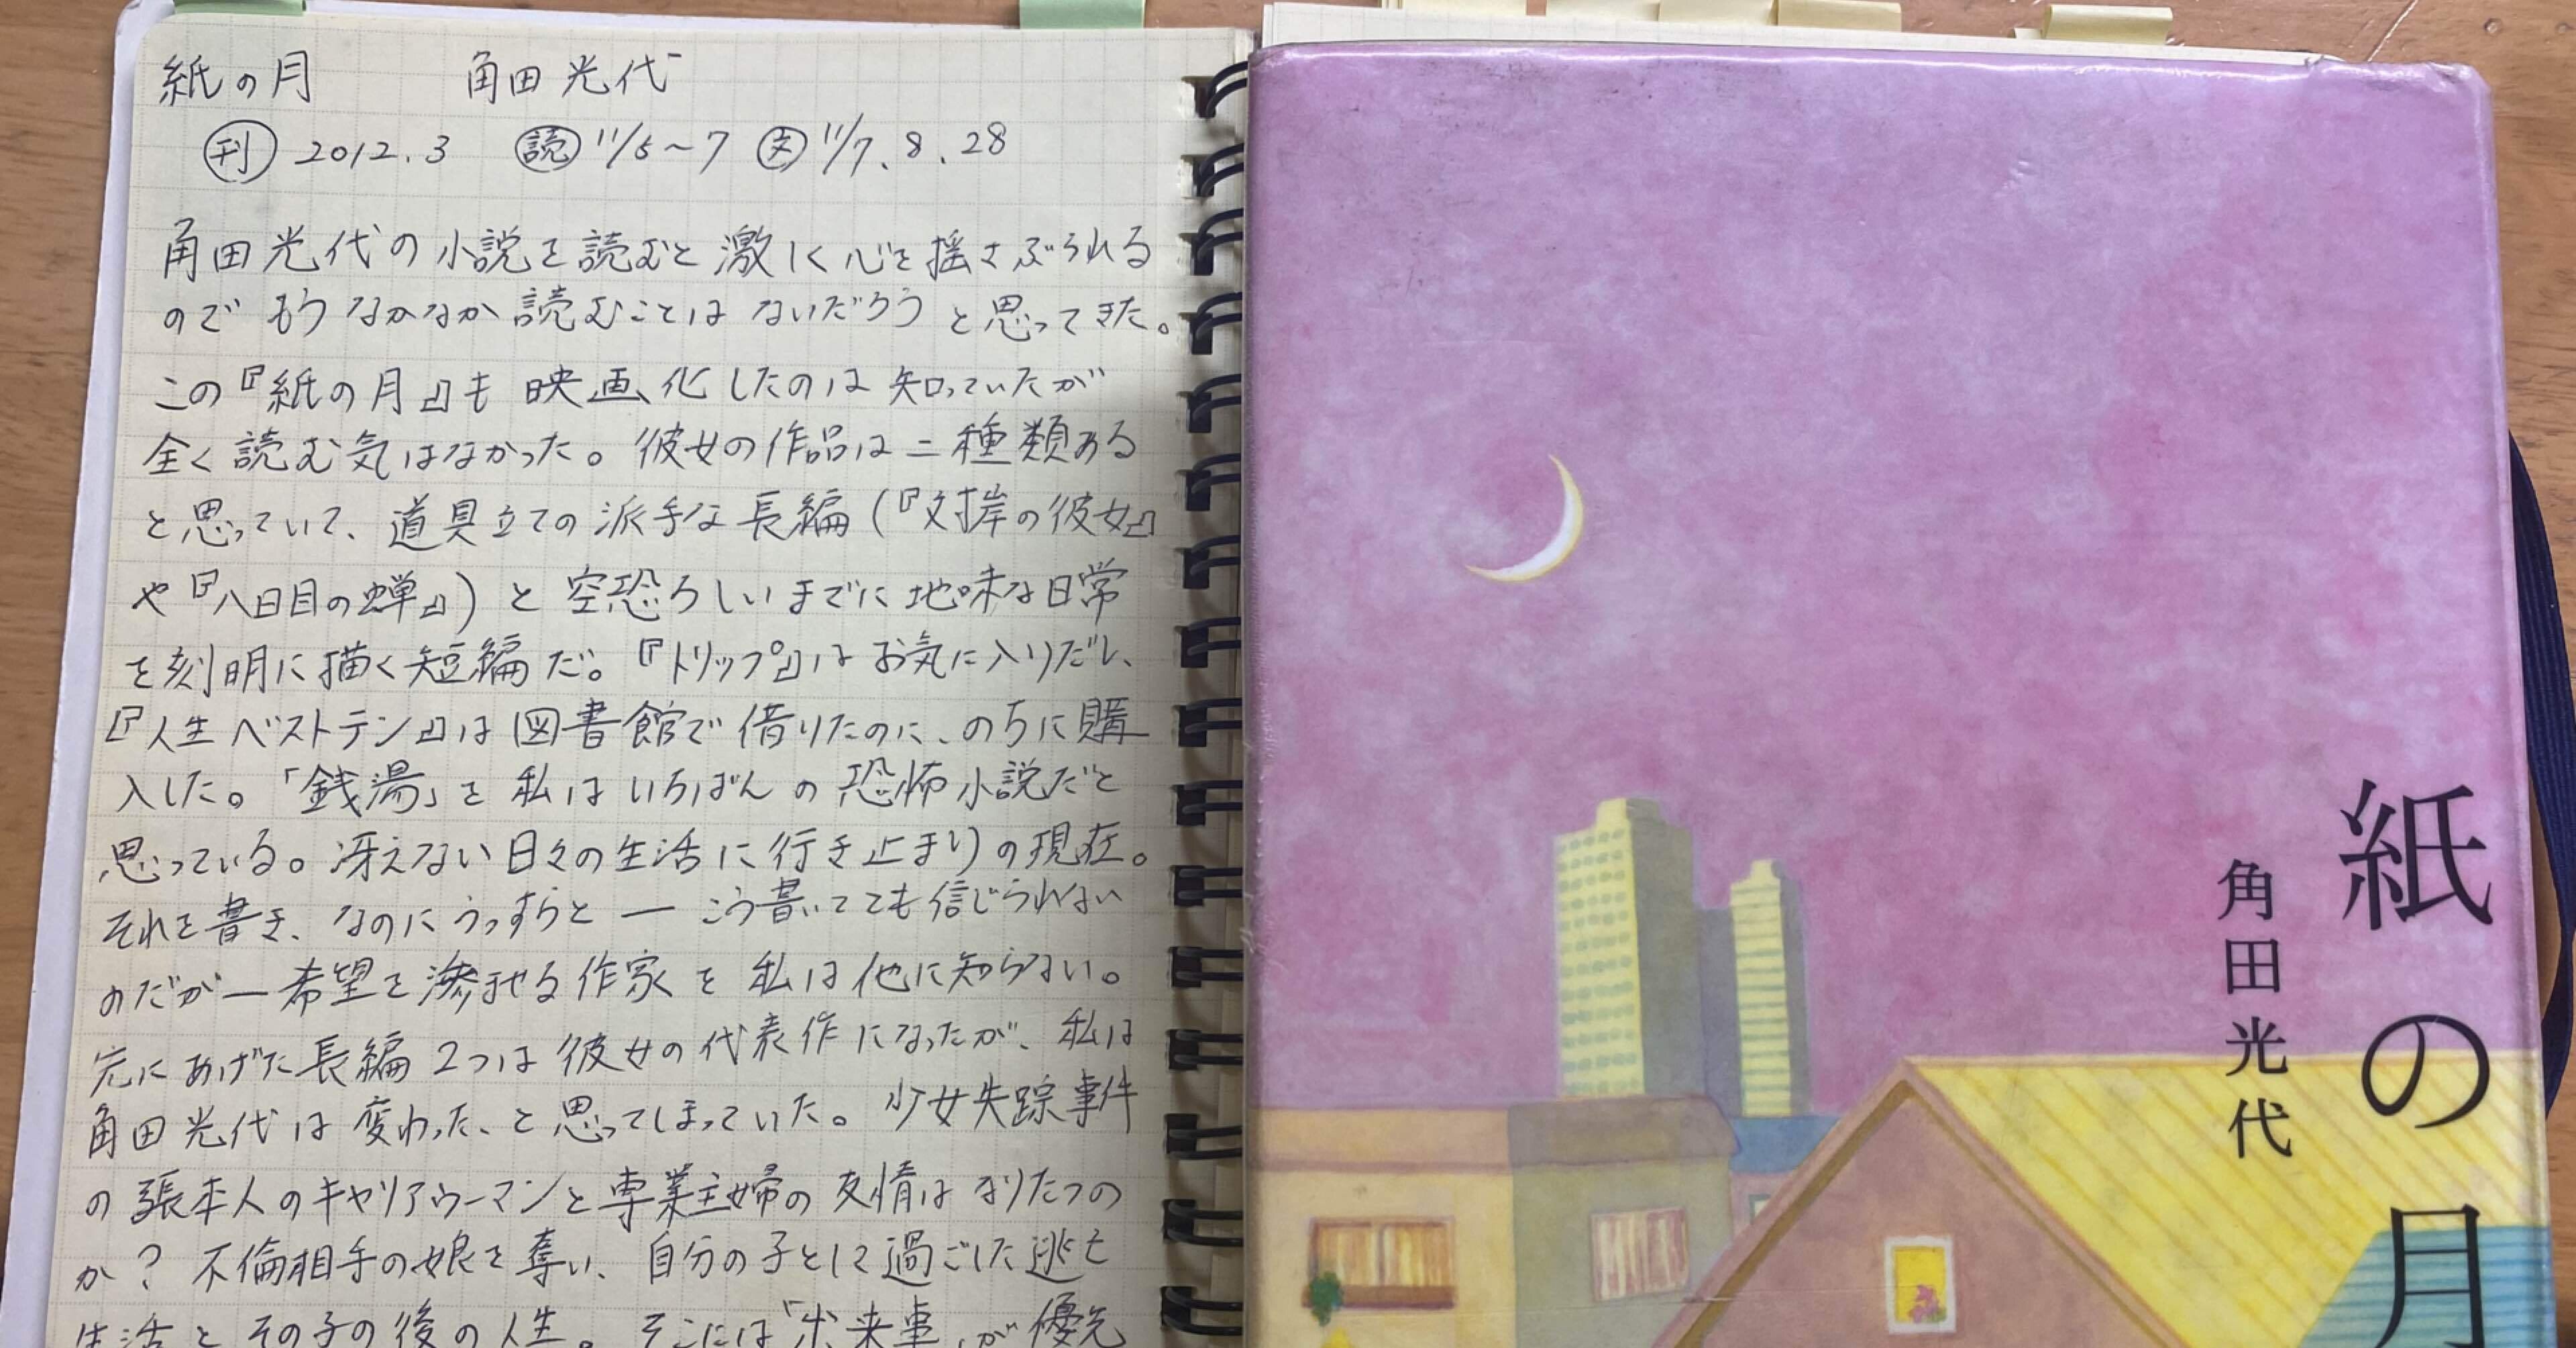 紙の月 角田光代
刊 2012.3 読 11/5~7 文 11/7、8、28
角田光代の小説を読むと激しく心を揺さぶられる
のでもうなかなか読むことはないだろうと思ってきた。
この『紙の月』も映画化したのは知っていたが
全く読む気はなかった。彼女の作品は二種類ある
と思っていて、道具立ての派手な長編(『対岸の彼女』
や『八日目の蝉』)と空恐ろしいまでに地味な日常
を刻明に描く短編だ。『トリップ』はお気に入りだし、
『人生ベストテン』は図書館で借りたのに、のちに購
入した。「銭湯」を私はいちばんの恐怖小説だと
思っている。冴えない日々の生活に行き止まりの現在。
それを書き、なのにうっすらと―こう書いてても信じられない
のだが―希望を滲ませる作家を私は他に知らない。
先にあげた長編2つは彼女の代表作になったが、私は
角田光代は変わった、と思ってしまっていた。少女失踪事件
の張本人のキャリアウーマンと専業主婦の友情はなりたつの
か?不倫相手の娘を奪い、自分の子として過ごした逃亡
生活とその子の後の人生。そこには「出来事」が優先
紙の月
角田光代